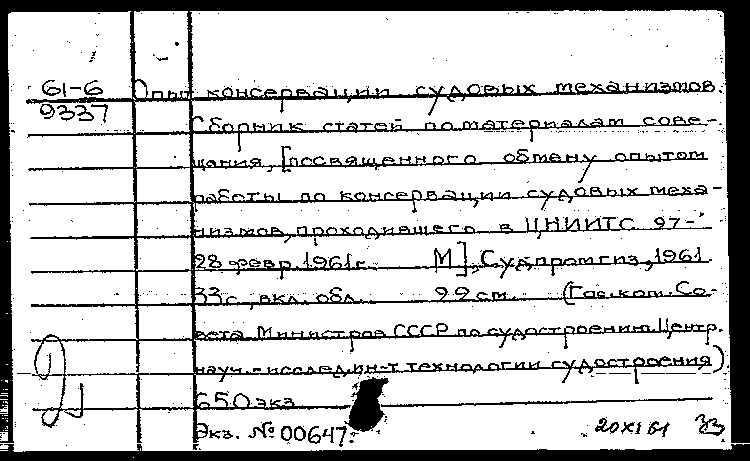 61-6
9337
Опыт консервации судовых механизмов.
Сборник статей по материалам сове-
щания, [посвященного обмену опытом
работы по консервации судовых меха-
низмов, проходившего в ЦНИИТС 27-
28 февр. 1961г. М], Судпромгиз, 1961
33с., вкл. обл. 22 см. (Гос. ком. Со-
вета Министров СССР по судостроению. Центр.
науч.-исслед. ин-т технологии судостроения)
650 экз
Экз. № 00647.
20 XI 61